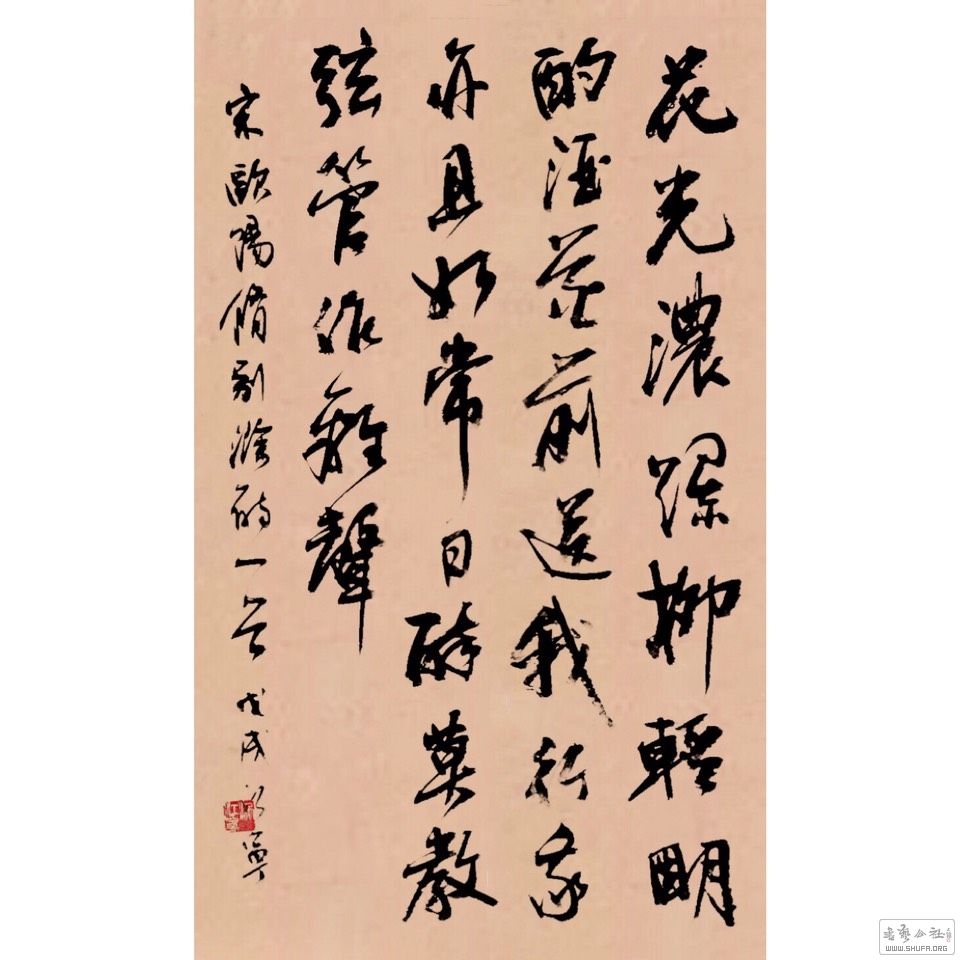 花光濃爛柳輕明
酌酒花前送我行我
亦且如常日醉莫教
弦管作離聲
宋歐陽脩別滁詩一首 戊戌
書藝公社
WWW.SHUFA.ORG